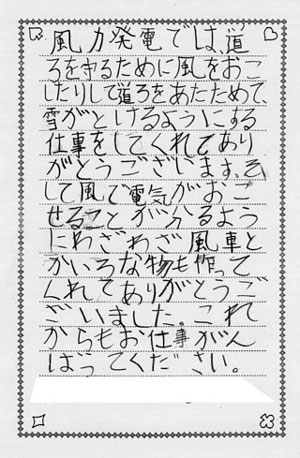 風力発電では、道
ろを守るために風をおこ
したりして道ろをあたためて、
雪がとけるようにする
仕事をしてくれてあり
がとうございます。そ
して風で電気がおこ
せることが分かるよう
にわざわざ風車と
かいろな物も作って
くれてありがとうご
ざいました。これ
からもお仕事がん
ばってください。